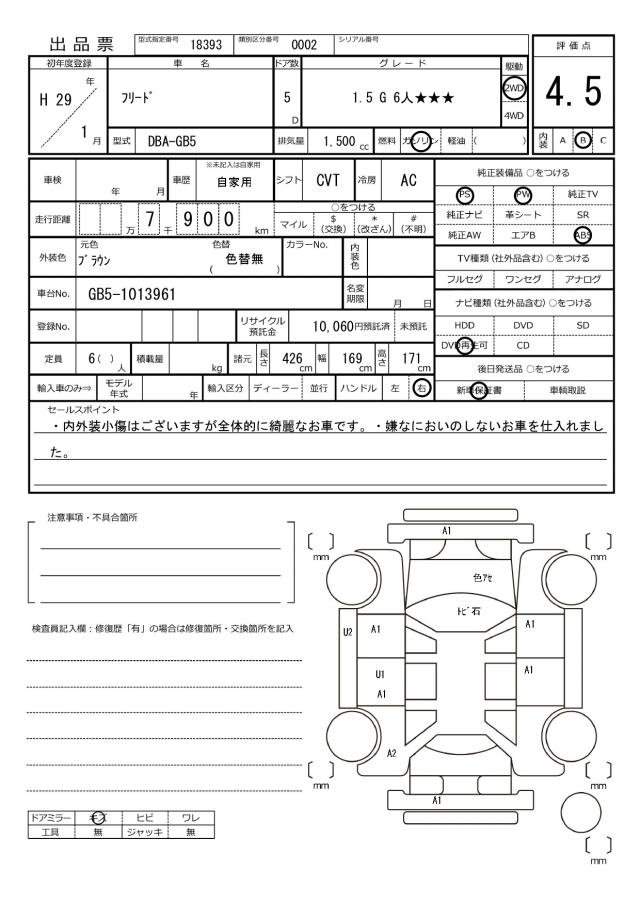 出品票
型式指定番号 18393 類別区分番号 0002 シリアル番号
評価点
初年度登録 車名 ドア数 グレード 駆動
H 29 年 フリード 5 D 1.5 G 6人★★★ 2WD 4WD
4.5
1 月 型式 DBA-GB5 排気量 1.500 cc 燃料 ガソリン 軽油 ( )
内装 A B C
車検 年 月 車歴 ※未記入は自家用 自家用 シフト CVT 冷房 AC
純正装備品 ○をつける
PS PW 純正TV
走行距離 万 7 千 9 0 0 km
○をつける
マイル $ (交換) * (改ざん) # (不明)
純正ナビ 革シート SR
純正AW エアB ABS
外装色 元色 ブラウン 色替 ( 色替無 ) カラーNo. 内装色
TV種類 (社外品含む) ○をつける
フルセグ ワンセグ アナログ
車台No. GB5-1013961 名変期限 月 日
ナビ種類 (社外品含む) ○をつける
登録No. リサイクル預託金 10,060円預託済 未預託
HDD DVD SD
DVD再生可 CD
定員 6 ( ) 人 積載量 kg 諸元 長さ 426 cm 幅 169 cm 高さ 171 cm
後日発送品 ○をつける
輸入車のみ⇒ モデル年式 年 輸入区分 ディーラー 並行 ハンドル 左 右
新車保証書 車輌取説
セールスポイント
・内外装小傷はございますが全体的に綺麗なお車です。・嫌なにおいのしないお車を仕入れまし
た。
注意事項・不具合箇所
検査員記入欄：修復歴「有」の場合は修復箇所・交換箇所を記入
A1
mm
mm
色アセ
トビ石
U2
A1
A1
U1
A1
A1
A2
mm
mm
A1
mm
ドアミラー キズ ヒビ ワレ
工具 無 ジャッキ 無